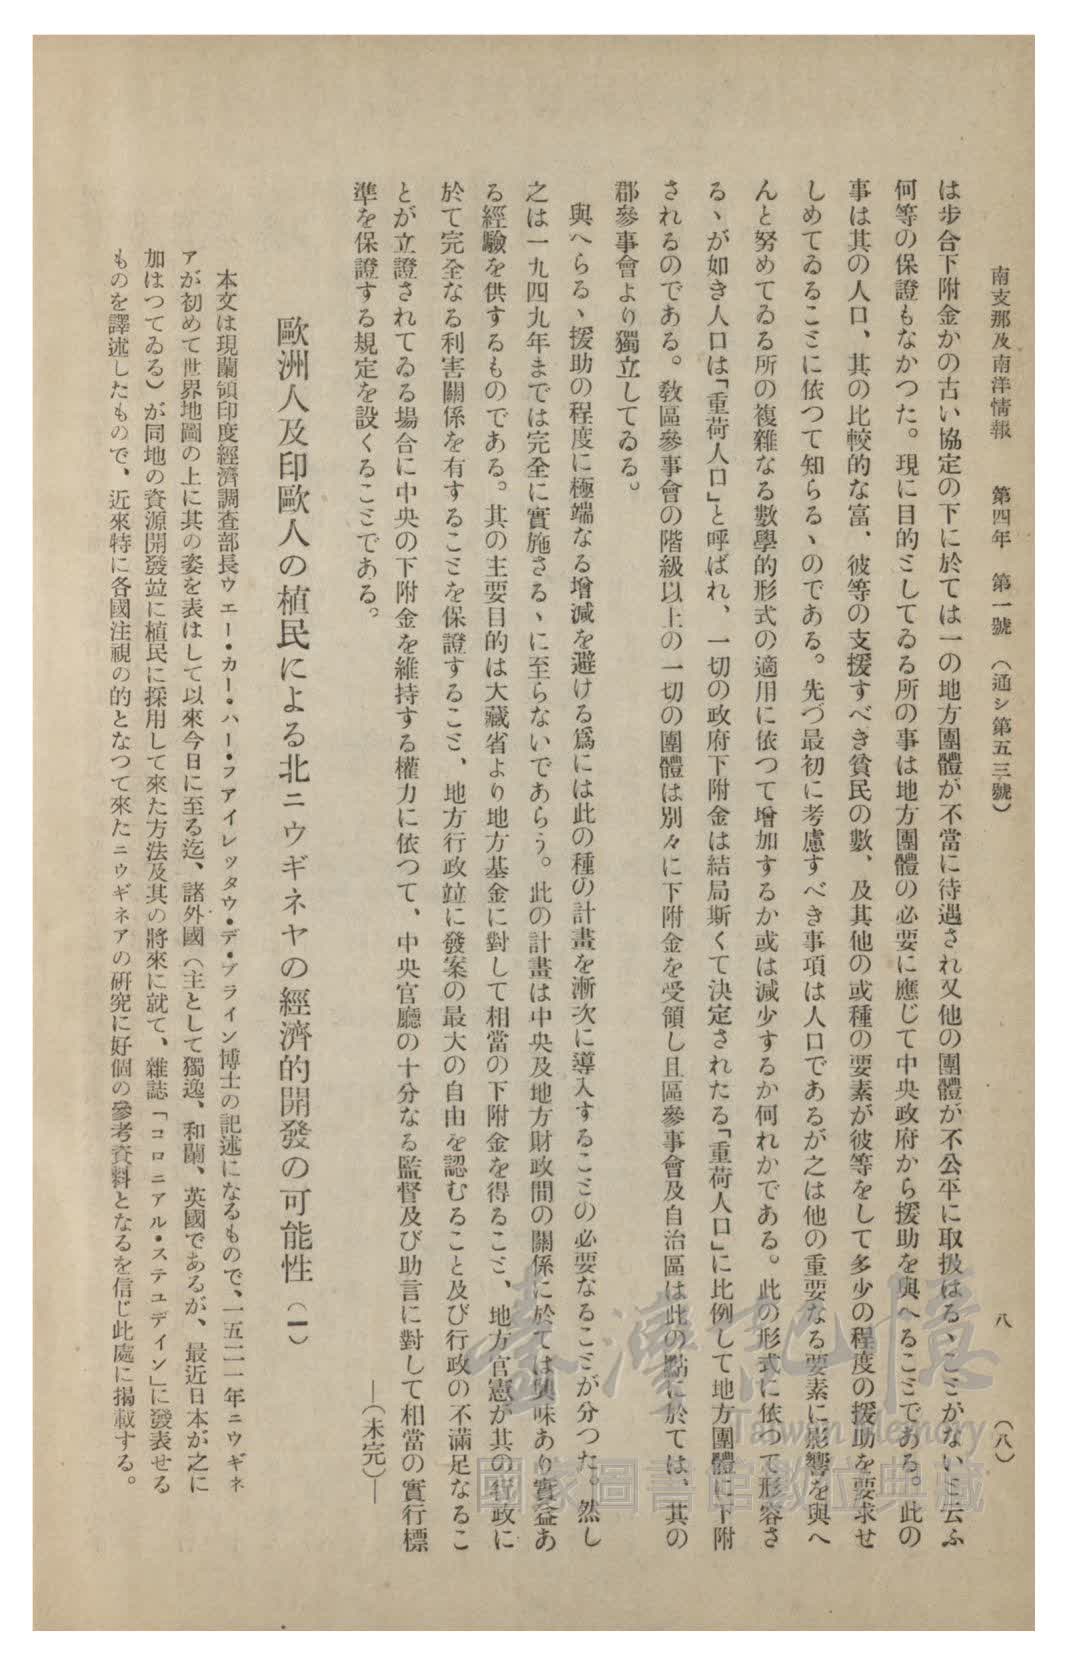 南支那及南洋情報　第四年　第一號　（通シ第五三號）　八　（八）
は步合下附金かの古い協定の下に於ては一の地方團體が不當に待遇され又他の團體が不公平に取扱はるヽことがないと云ふ
何等の保證もなかつた。現に目的としてゐる所の事は地方團體の必要に應じて中央政府から援助を與へることである。此の
事は其の人口、其の比較的な富、彼等の支援すべき貧民の數、及其他の或種の要素が彼等をして多少の程度の援助を要求せ
しめてゐることに依つて知らるヽのである。先づ最初に考慮すべき事項は人口であるが之は他の重要なる要素に影響を與へ
んと努めてゐる所の複雜なる數學的形式の適用に依つて增加するか或は減少するか何れかである。此の形式に依つて形容さ
るヽが如き人口は「重荷人口」と呼ばれ、一切の政府下附金は結局斯くて決定されたる「重荷人口」に比例して地方團體に下附
されるのである。敎區參事會の階級以上の一切の團體は別々に下附金を受領し且區參事會及自治區は此の點に於ては、其の
郡參事會より獨立してゐる。
與へらるヽ援助の程度に極端なる增減を避ける爲には此の種の計畫を漸次に導入することの必要なることが分つた。然し
之は一九四九年までは完全に實施さるヽに至らないであらう。此の計畫は中央及地方財政間の關係に於ては興味あり實益あ
る經驗を供するものである。其の主要目的は大藏省より地方基金に對して相當の下附金を得ること、地方官憲が其の行政に
於て完全なる利害關係を有することを保證すること、地方行政竝に發案の最大の自由を認むること及び行政の不滿足なるこ
とが立證されてゐる場合に中央の下附金を維持する權力に依つて、中央官廳の十分なる監督及び助言に對して相當の實行標
準を保證する規定を設くることである。
―（未完）―
歐洲人及印歐人の植民による北ニウギネヤの經濟的開發の可能性（一）
本文は現蘭領印度經濟調査部長ウエー・カー・ハー・フアイレッタウ・デ・ブライン博士の記述になるもので、一五二一年ニウギネ
アが初めて世界地圖の上に其の姿を表はして以來今日に至る迄、諸外國（主として獨逸、和蘭、英國であるが、最近日本が之に
加はつてゐる）が同地の資源開發竝に植民に採用して來た方法及其の將來に就て、雜誌「コロニアル・ステユデイン」に發表せる
ものを譯述したもので、近來特に各國注視の的となつて來たニウギネアの研究に好個の參考資料となるを信じ此處に揭載する。
臺灣記憶
Taiwan Memory
國家圖書館數位典藏